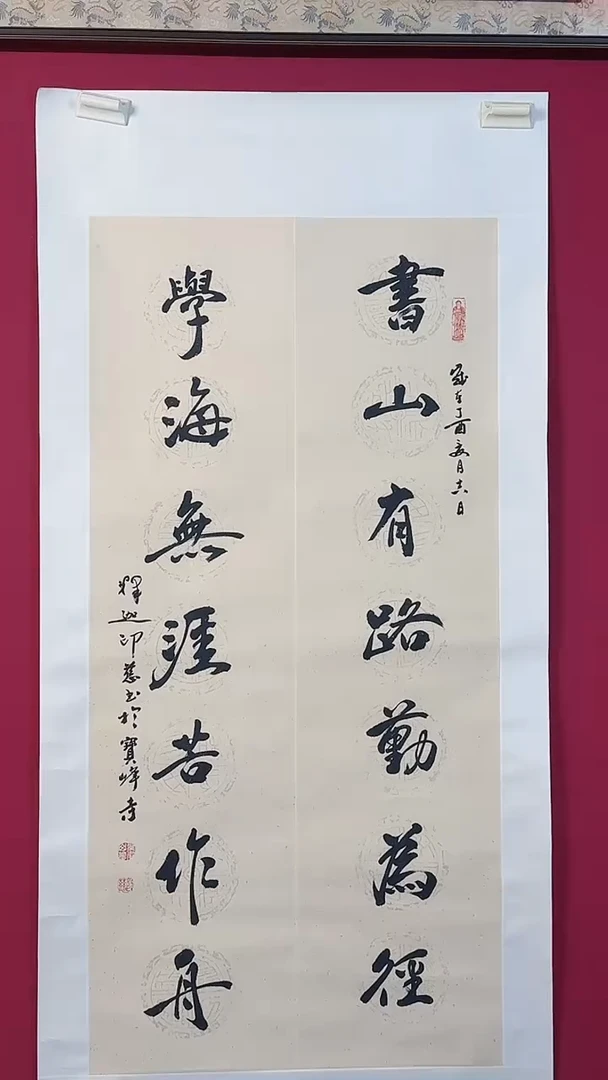 歲在丁酉亥月六日
書山有路勤為徑
學海無涯苦作舟
釋迦印慈書於寶峰寺